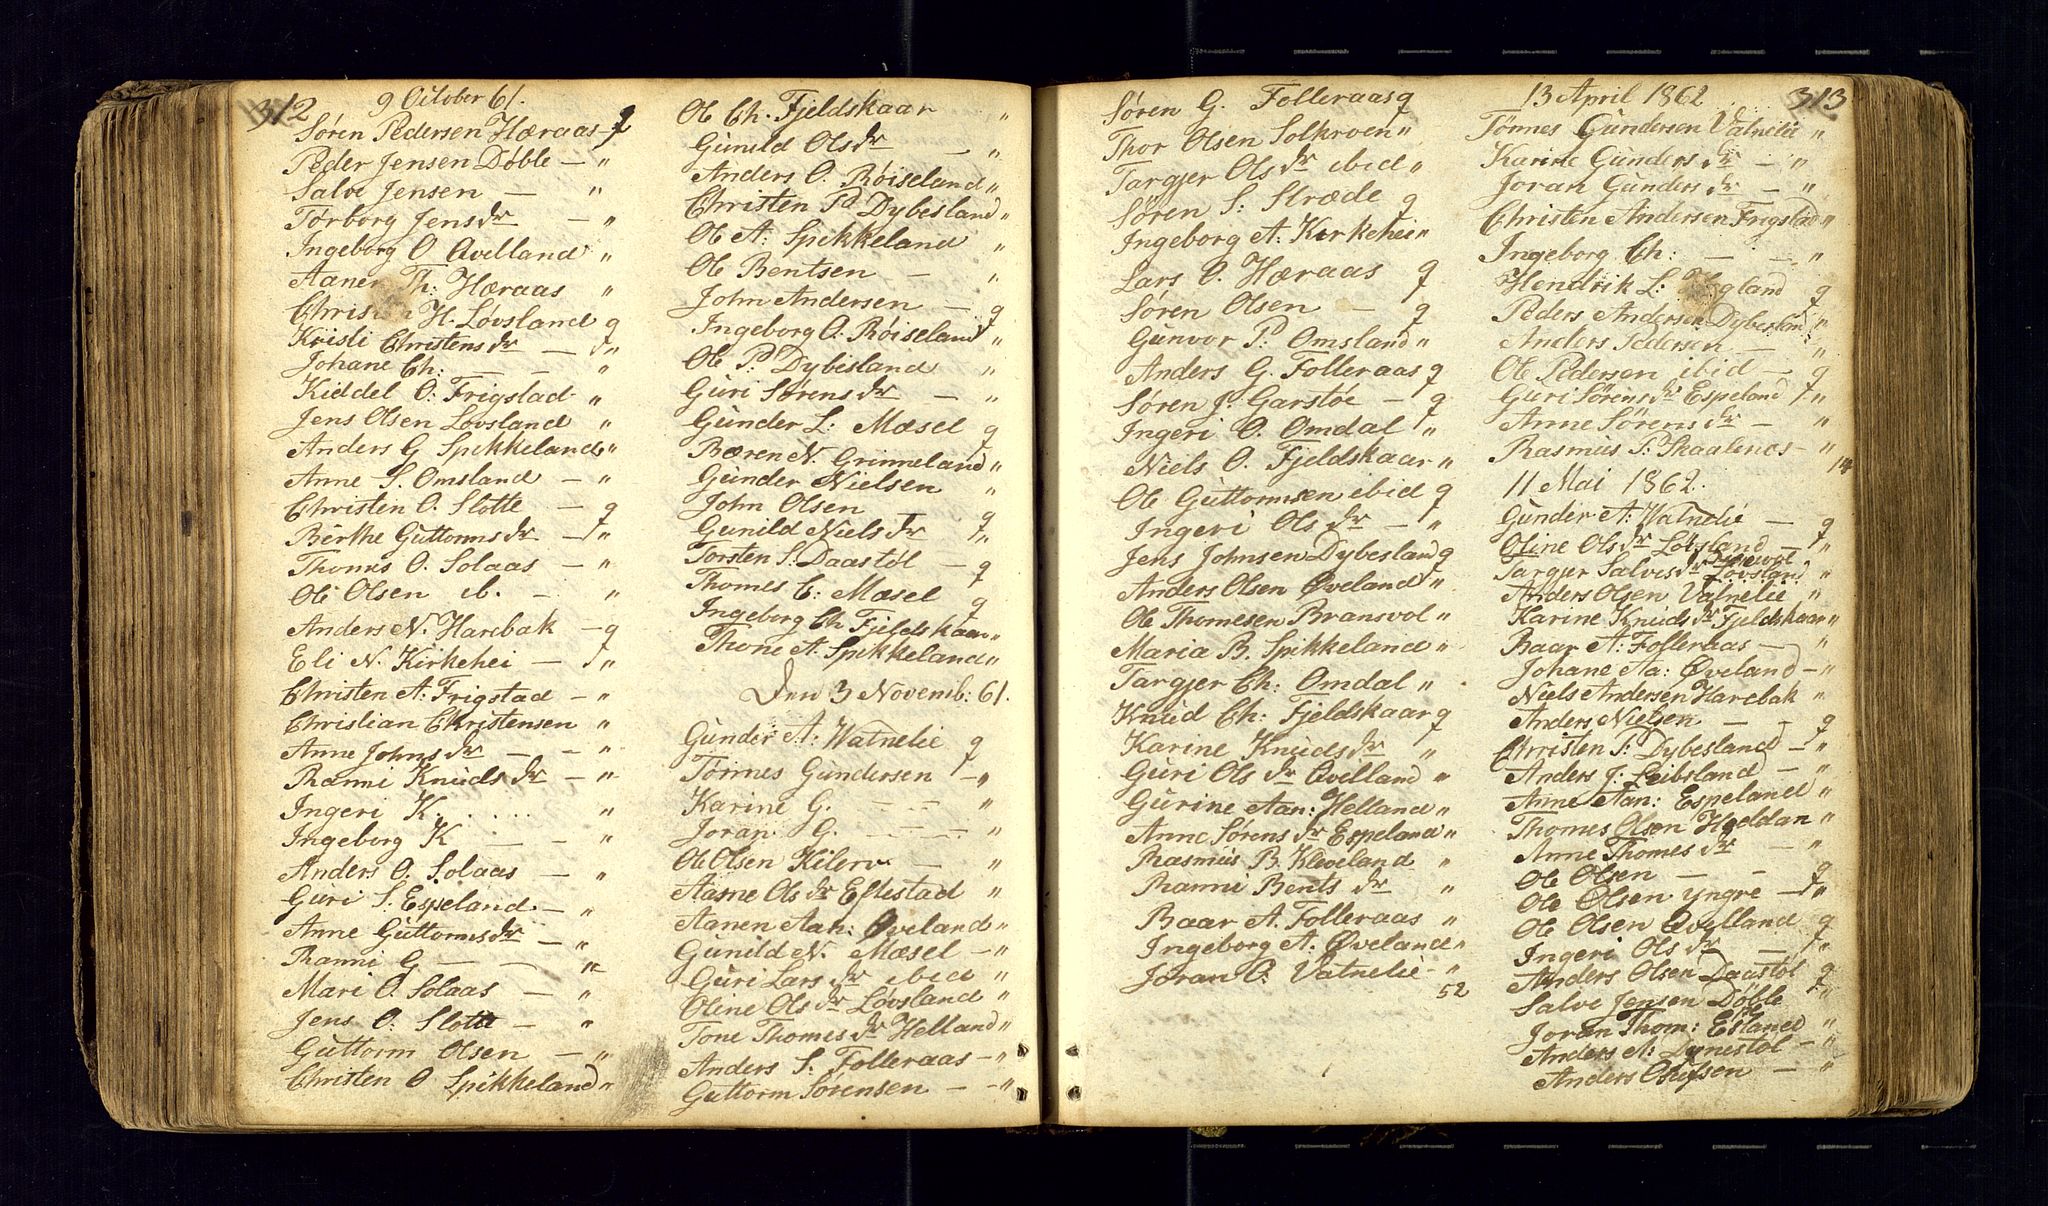 312
9 October 61.
Søren Pedersen Hæraas g
Peder Jensen Døble — "
Salve Jensen — "
Torborg Jensdr — "
Ingeborg O Øvelland "
Aanen Th: Hæraas "
Christen H. Løvsland g
Kristi Christensdr — g"
Johane Ch: — — "
Kiddel O: Frigstad "
Jens Olsen Løvsland "
Anders G Spikkeland "
Anne S. Omsland — "
Christen O. Slotte — g
Berthe Guttormsdr — "
Thomes O. Solaas — "
Ole Olsen ib. — "
Anders N. Harebak — g
Eli N. Kirkehei — "
Christen A: Frigstad — "
Christian Christensen "
Anne Johnsdr — — "
Ranni Knudsdr — "
Ingeri K. . . . . "
Ingeborg K — — "
Anders O. Solaas — "
Guri S. Espeland — "
Anne Guttormsdr — "
Ranni G — — "
Mari O. Solaas — "
Jens O: Slotte — "
Guttorm Olsen — "
Christen O Spikkeland "
Ole Ch. Fjeldskaar "
Gunild Olsdr — "
Anders O. Røiseland "
Christen Pd Dybesland "
Ole A: Spikkeland "
Ole Bentsen — "
John Andersen — g
Ingeborg O. Røiseland "
Ole P: Dybesland "
Guri Sørensdr — "
Gunder L: Mæsel g
Bæren N. Grimeland "
Gunder Nielsen "
John Olsen g
Gunild Nielsdr "
Torsten S: Daastøl — g
Thomes C: Mæsel g
Ingeborg Ch Fjeldskaar "
Thone A. Spikkeland "
Den 3 Novemb: 61.
Gunder A: Vatnelie g
Tønnes Gundersen — "
Karine G. — — "
Joran G. — — — "
Ole Olsen Kilerv — "
Aasne Olsdr Eftestad "
Aanen Aan: Øveland "
Gunild N. Mæsel — "
Guri Larsdr ibid "
Oline Olsdr Løvsland "
Tone Thomesdr Helland "
Anders S. Folleraas — "
Guttorm Sørensen — — "
Søren G. Folleraas g
Thor Olsen Solkroen "
Targjer Olsdr ibid "
Søren S: Stræde g
Ingeborg A: Kirkehei "
Lars O. Hæraas g
Søren Olsen — g
Gunvor P: Omsland "
Anders G. Folleraas g
Søren J. Garstøe — g
Ingeri O. Omdal "
Niels O. Fjeldskaar "
Ole Guttormsen ibid g
Ingeri Olsdr — "
Jens Johnsen Dybesland g
Anders Olsen Øveland "
Ole Thomesen Bransvol "
Maria B. Spikkeland "
Targjer Ch: Omdal "
Knud Ch: Fjeldskaar g
Karine Knudsdr "
Guri Olsdr Øvelland "
Gurine Aan: Helland "
Anne Sørensdr Espeland "
Rasmus B. Kleveland "
Ranni Bentsdr "
Baar A. Folleraas "
Ingeborg A. Øveland "
Joran O. Vatnelie — "
52
13 April 1862
313
Tønnes Gundersen Vatnelie "
Karine Gundersdr — "
Joran Gundersdr — "
Christen Andersen Frigstad "
Ingeborg Ch: — — "
Hendrik L: gland g
Peders Andersen Dybesland "
Anders Pedersen — "
Ole Pedersen ibid — g
Guri Sørensdr Espeland "
Anne Sørensdr — "
Rasmus S. Skaalenes — "
14
11 Mai 1862.
Gunder A: Vatnelie — g
Oline Olsdr Løvsland — "
Targjer Salvesdr Løvsland "
Anders Olsen Vatnelie "
Karine Knudsdr Fjeldskaar "
Baar A. Folleraas — "
Johane Aa: Øveland — "
Niels Andersen Harebak "
Anders Nielsen — — g
Christen P: Dybesland — "
Anders J: Leibsland — "
Anne Aan: Espeland "
Thomes Olsen Haddan "
Anne Thomesdr — "
Ole Olsen — — g
Ole Olsen yngre — "
Ole Olsen Øvelland g
Ingeri Olsdr — "
Anders Olsen Daastøl g
Salve Jensen Døble "
Joran Thom: Esland "
Anders A: Dynestøl — "
Anders Olufsen — "